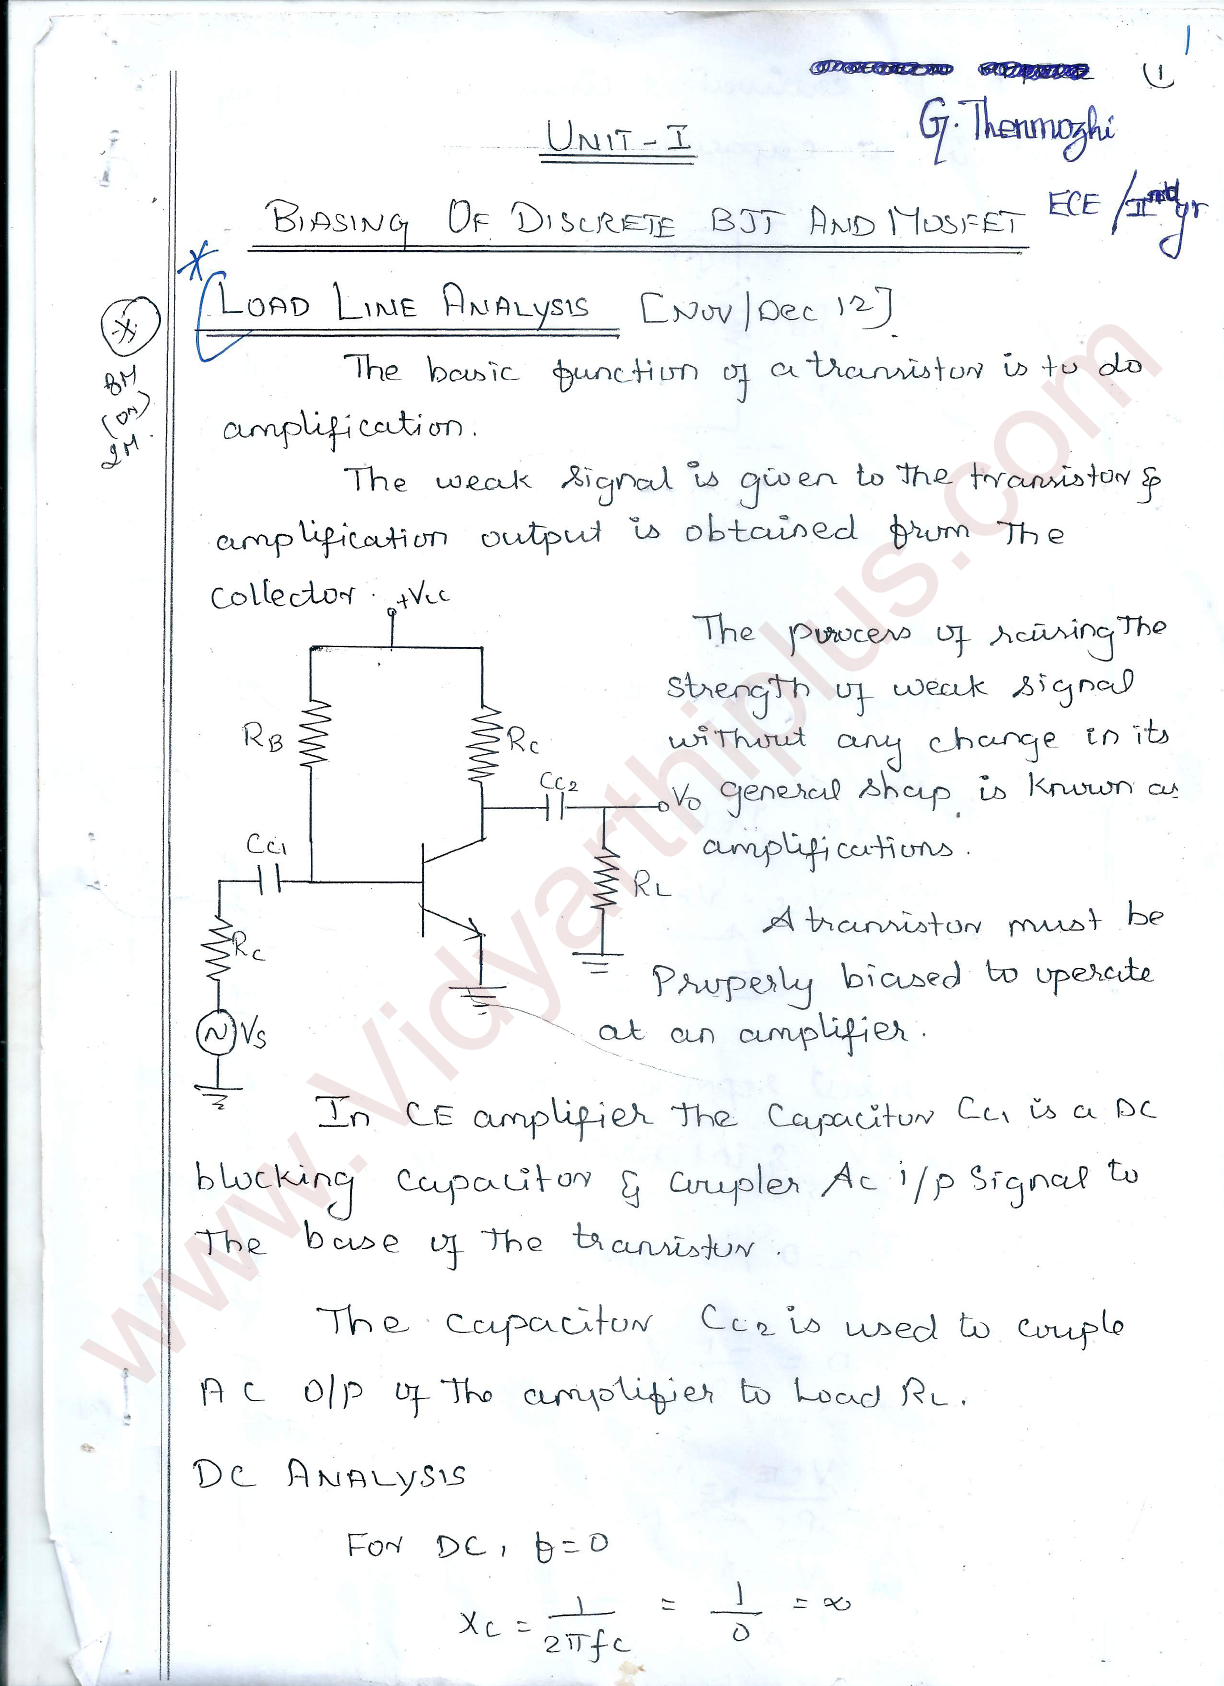 1
(1)
G. Thenmozhi
UNIT - I
ECE / IInd yr
BIASING OF DISCRETE BJT AND MOSFET
LOAD LINE ANALYSIS [Nov/Dec 12]
8M
(or)
2M.
The basic function of a transistor is to do
amplification.
The weak signal is given to the transistor &
amplification output is obtained from The
collector.
+Vcc
The process of raising The
strength of weak signal
without any change in its
general shap is known as
amplifications.
A transistor must be
Properly biased to operate
at an amplifier.
RB
Rc
Cc2
Vo
Cc1
RL
Rc
Vs
In CE amplifier the Capacitor Cc1 is a DC
blocking capacitor & couples Ac i/p signal to
The base of the transistor.
The capacitor Cc2 is used to couple
AC O/P of The amplifier to Load RL.
DC ANALYSIS
For DC, f=0
Xc = 1/2πfc = 1/0 = ∞
www.Vidyarthiplus.com